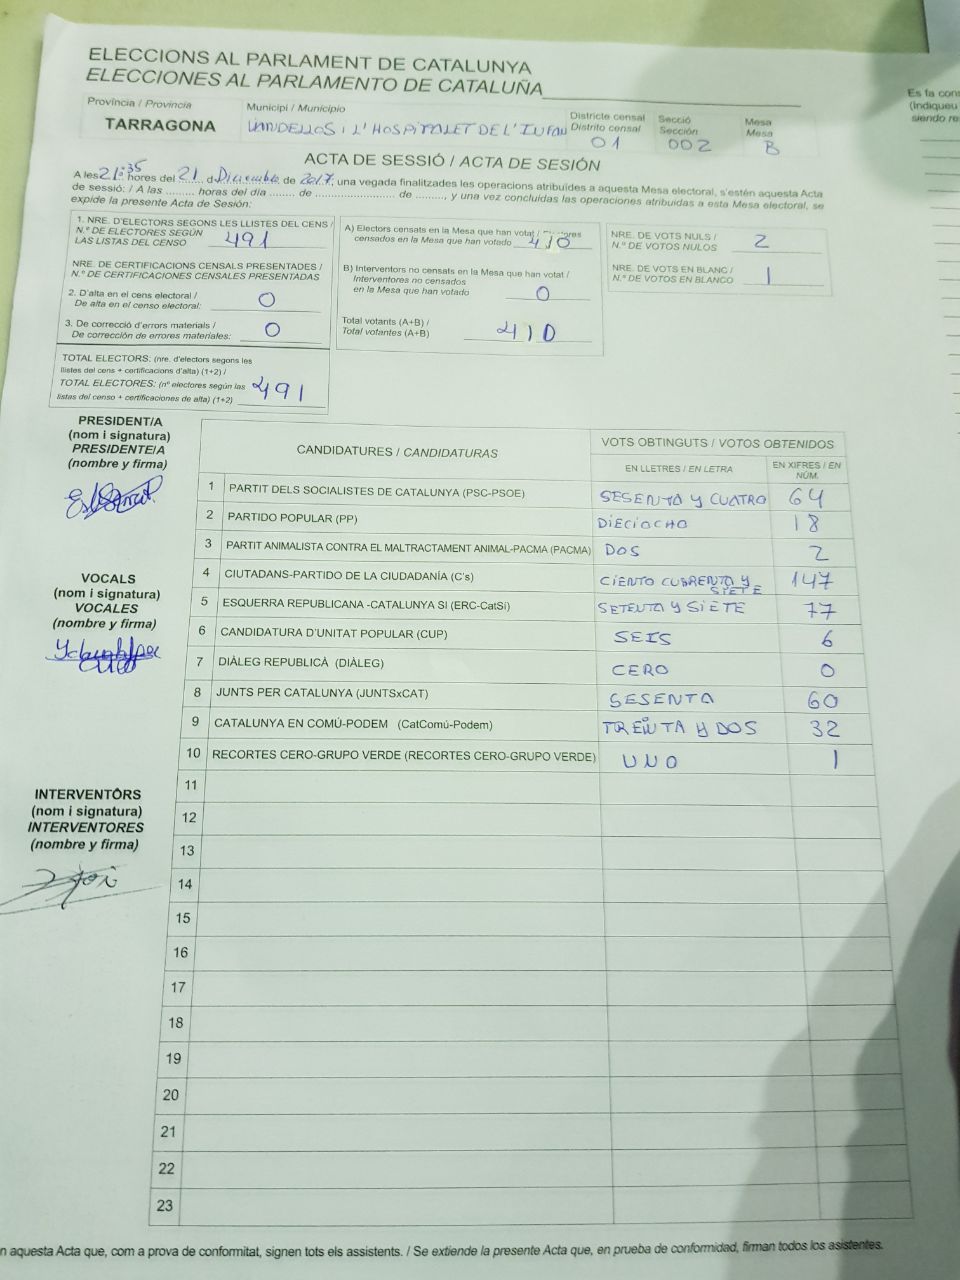 ELECCIONS AL PARLAMENT DE CATALUNYA
ELECCIONES AL PARLAMENTO DE CATALUÑA
Es fa cons
(Indiqueu
siendo re
Província / Provincia
TARRAGONA
Municipi / Municipio
VANDELLOS I L'HOSPITALET DE L'INFAN
Districte censal
Distrito censal
01
Secció
Sección
002
Mesa
Mesa
B
ACTA DE SESSIÓ / ACTA DE SESIÓN
A les 21:35 hores del 21 d Diciembre de 2017, una vegada finalitzades les operacions atribuïdes a aquesta Mesa electoral, s'estén aquesta Acta
de sessió: / A las ......... horas del día ........ de ........................ de ........., y una vez concluidas las operaciones atribuidas a esta Mesa electoral, se
expide la presente Acta de Sesión:
1. NRE. D'ELECTORS SEGONS LES LLISTES DEL CENS /
N.º DE ELECTORES SEGÚN
LAS LISTAS DEL CENSO 491
NRE. DE CERTIFICACIONS CENSALS PRESENTADES /
N.º DE CERTIFICACIONES CENSALES PRESENTADAS
2. D'alta en el cens electoral /
De alta en el censo electoral: 0
3. De correcció d'errors materials /
De corrección de errores materiales: 0
TOTAL ELECTORS: (nre. d'electors segons les
llistes del cens + certificacions d'alta) (1+2) /
TOTAL ELECTORES: (nº electores según las
listas del censo + certificaciones de alta) (1+2) 491
A) Electors censats en la Mesa que han votat /
censados en la Mesa que han votado 410
B) Interventors no censats en la Mesa que han votat /
Interventores no censados
en la Mesa que han votado 0
Total votants (A+B) /
Total votantes (A+B) 410
NRE. DE VOTS NULS /
N.º DE VOTOS NULOS 2
NRE. DE VOTS EN BLANC /
N.º DE VOTOS EN BLANCO 1
PRESIDENT/A
(nom i signatura)
PRESIDENTE/A
(nombre y firma)
VOCALS
(nom i signatura)
VOCALES
(nombre y firma)
INTERVENTORS
(nom i signatura)
INTERVENTORES
(nombre y firma)
CANDIDATURES / CANDIDATURAS
VOTS OBTINGUTS / VOTOS OBTENIDOS
EN LLETRES / EN LETRA
EN XIFRES / EN
NÚM.
1 PARTIT DELS SOCIALISTES DE CATALUNYA (PSC-PSOE) SESENTA Y CUATRO 64
2 PARTIDO POPULAR (PP) DIECIOCHO 18
3 PARTIT ANIMALISTA CONTRA EL MALTRACTAMENT ANIMAL-PACMA (PACMA) DOS 2
4 CIUTADANS-PARTIDO DE LA CIUDADANÍA (C's) CIENTO CUARENTA Y SIETE 147
5 ESQUERRA REPUBLICANA -CATALUNYA SI (ERC-CatSí) SETENTA Y SIETE 77
6 CANDIDATURA D'UNITAT POPULAR (CUP) SEIS 6
7 DIÀLEG REPUBLICÀ (DIÀLEG) CERO 0
8 JUNTS PER CATALUNYA (JUNTSxCAT) SESENTA 60
9 CATALUNYA EN COMÚ-PODEM (CatComú-Podem) TREINTA Y DOS 32
10 RECORTES CERO-GRUPO VERDE (RECORTES CERO-GRUPO VERDE) UNO 1
11
12
13
14
15
16
17
18
19
20
21
22
23
n aquesta Acta que, com a prova de conformitat, signen tots els assistents. / Se extiende la presente Acta que, en prueba de conformidad, firman todos los asistentes.